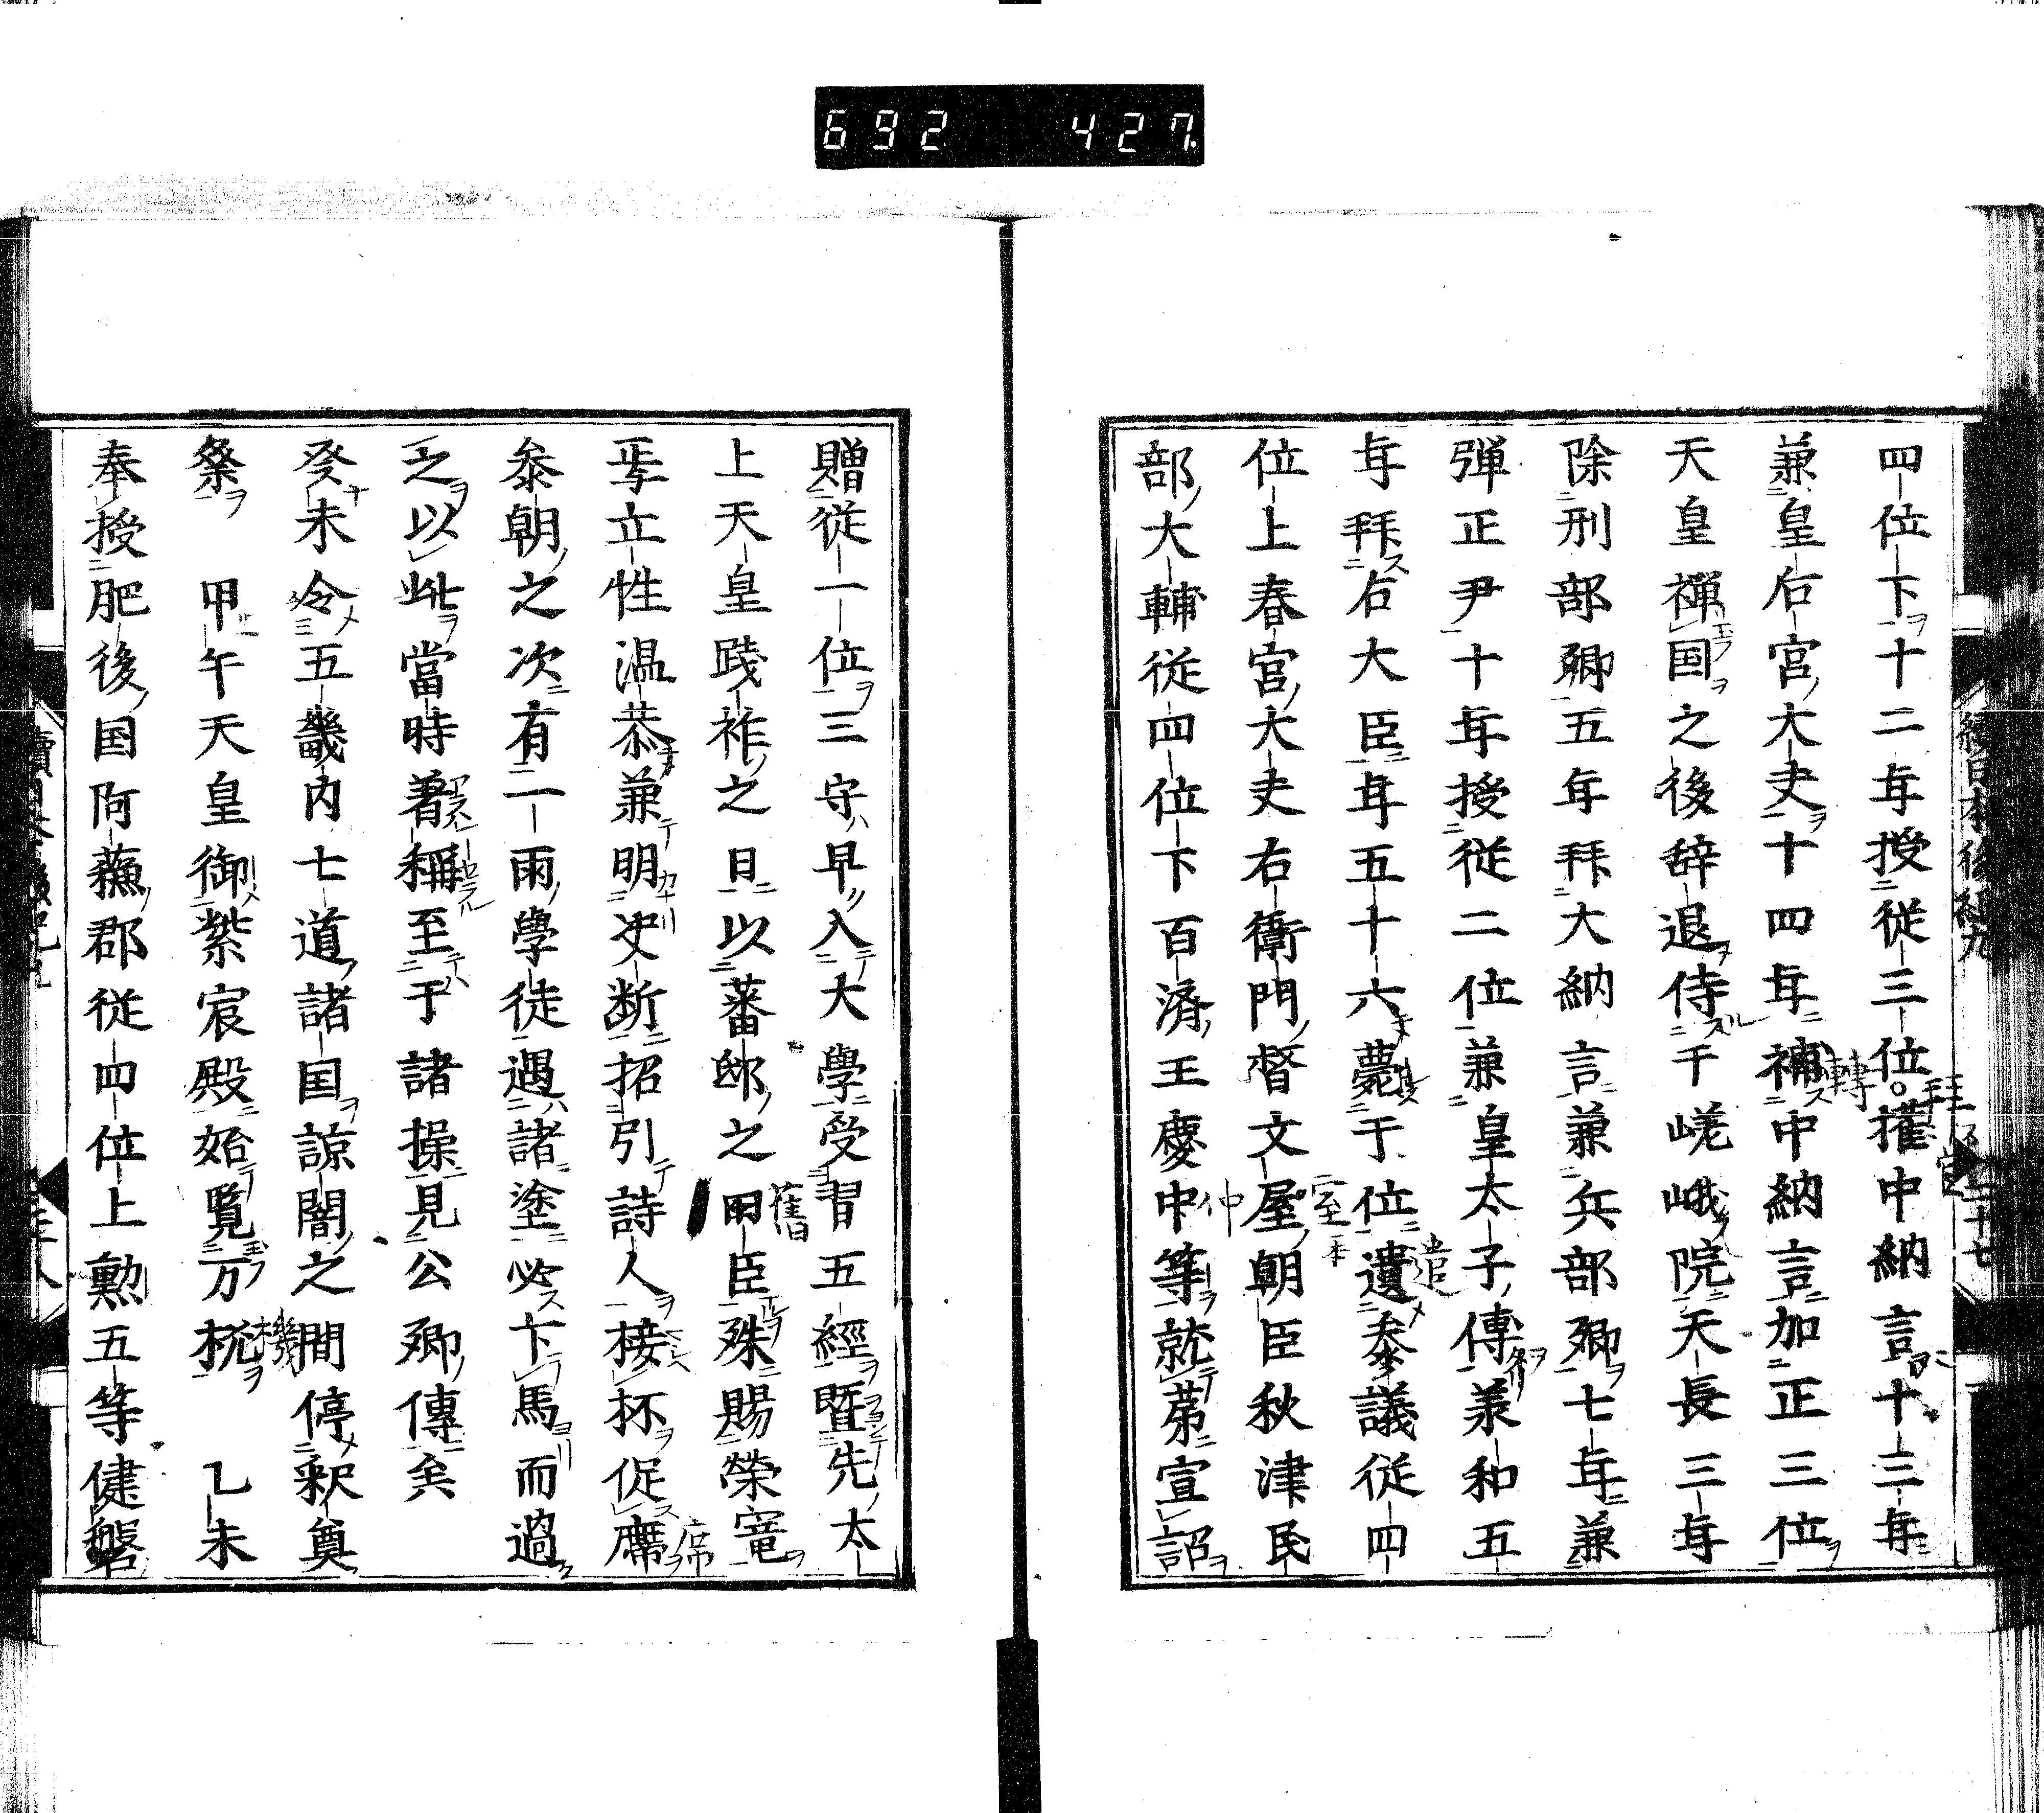 692 427
四位下十二年授従三位權中納言十三年
兼皇后宮大夫十四年補中納言加正三位
天皇禅国之後辞退侍于嵯峨院天長三年
除刑部卿五年拜大納言兼兵部卿七年兼
弾正尹十年授従二位兼皇太子傳羕和五
年拜右大臣年五十六薨于位遺参議従四
位上春宮大夫右衛門督文屋朝臣秋津民
部大輔従四位下百済王慶中等就第宣詔
贈従一位三守早入大學受習五經曁先太
上天皇践祚之日以蕃邸之旧臣殊賜榮寵
焉立性温恭兼明决断招引詩人接杯促席
参朝之次有一二雨學徒遇諸塗必下馬而過
之以此當時著稱至于諸操見公卿傳矣
癸未令五畿内七道諸国諒闇之間停釈奠
祭 甲午天皇御紫宸殿始覧万机 乙未
奉授肥後国阿蘇郡従四位上勲五等健磐